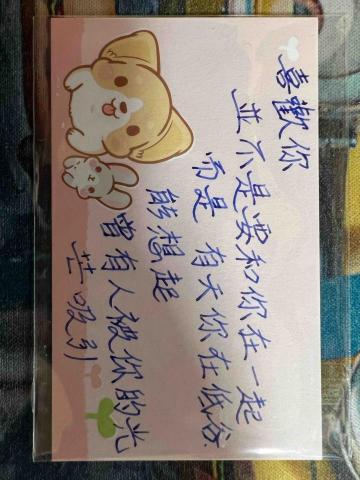 喜歡你
並不是要和你在一起
而是 有天你在低谷
能想起
曾有人被你的光
芒吸引